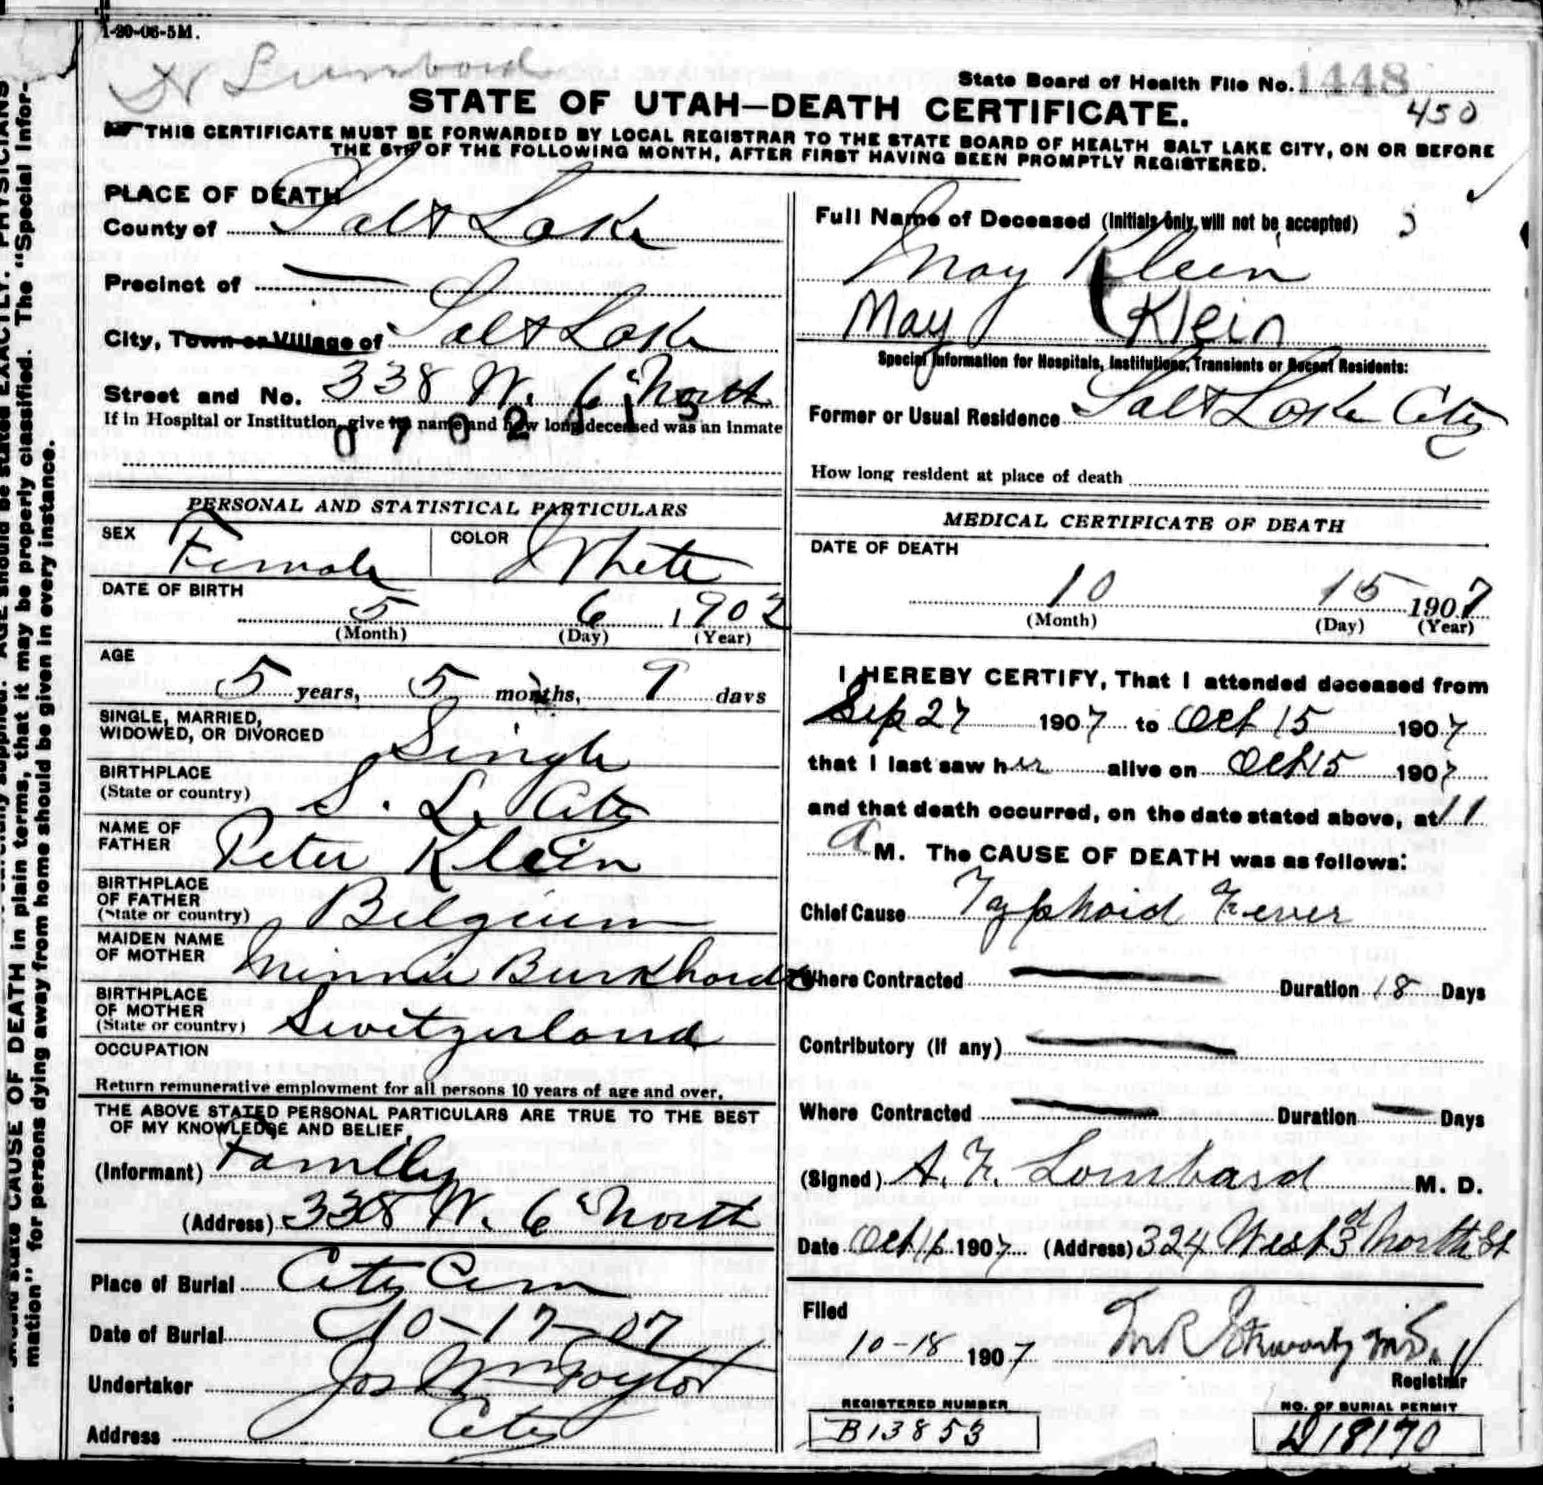 1-20-06-5M.
State Board of Health File No. 1448
STATE OF UTAH—DEATH CERTIFICATE.
450
THIS CERTIFICATE MUST BE FORWARDED BY LOCAL REGISTRAR TO THE STATE BOARD OF HEALTH SALT LAKE CITY, ON OR BEFORE
THE 5TH OF THE FOLLOWING MONTH, AFTER FIRST HAVING BEEN PROMPTLY REGISTERED.
PLACE OF DEATH
County of Salt Lake
Precinct of —
City, Town or Village of Salt Lake
Street and No. 338 W. 6" North
If in Hospital or Institution, give its name and how long deceased was an Inmate
0702415
PERSONAL AND STATISTICAL PARTICULARS
SEX Female COLOR White
DATE OF BIRTH
5 6 1902
(Month) (Day) (Year)
AGE
5 years, 5 months, 9 days
SINGLE, MARRIED,
WIDOWED, OR DIVORCED Single
BIRTHPLACE
(State or country) S. L. City
NAME OF
FATHER Peter Klein
BIRTHPLACE
OF FATHER
(State or country) Belgium
MAIDEN NAME
OF MOTHER Minnie Burkhardt
BIRTHPLACE
OF MOTHER
(State or country) Switzerland
OCCUPATION
Return remunerative employment for all persons 10 years of age and over.
THE ABOVE STATED PERSONAL PARTICULARS ARE TRUE TO THE BEST
OF MY KNOWLEDGE AND BELIEF.
(Informant) Familly
(Address) 338 W. 6" North
Place of Burial City Cem
Date of Burial 10-17-07
Undertaker Jos Wm Taylor
Address City
Full Name of Deceased (Initials only, will not be accepted)
May Klein
May Klein
Special Information for Hospitals, Institutions, Transients or Recent Residents:
Former or Usual Residence Salt Lake City
How long resident at place of death
MEDICAL CERTIFICATE OF DEATH
DATE OF DEATH
10 15 1907
(Month) (Day) (Year)
I HEREBY CERTIFY, That I attended deceased from
Sep 27 1907 to Oct 15 1907
that I last saw her alive on Oct 15 1907
and that death occurred, on the date stated above, at 11
a M. The CAUSE OF DEATH was as follows:
Chief Cause Typhoid Fever
Where Contracted — Duration 18 Days
Contributory (If any) —
Where Contracted — Duration — Days
(Signed) A. F. Lombard M. D.
Date Oct 16 1907 (Address) 324 West 3rd North St
Filed
10-18 1907
Registrar
REGISTERED NUMBER
B13853
NO. OF BURIAL PERMIT
D18170
CAUSE OF DEATH in plain terms, that it may be properly classified. The "Special Infor-
mation" for persons dying away from home should be given in every instance.